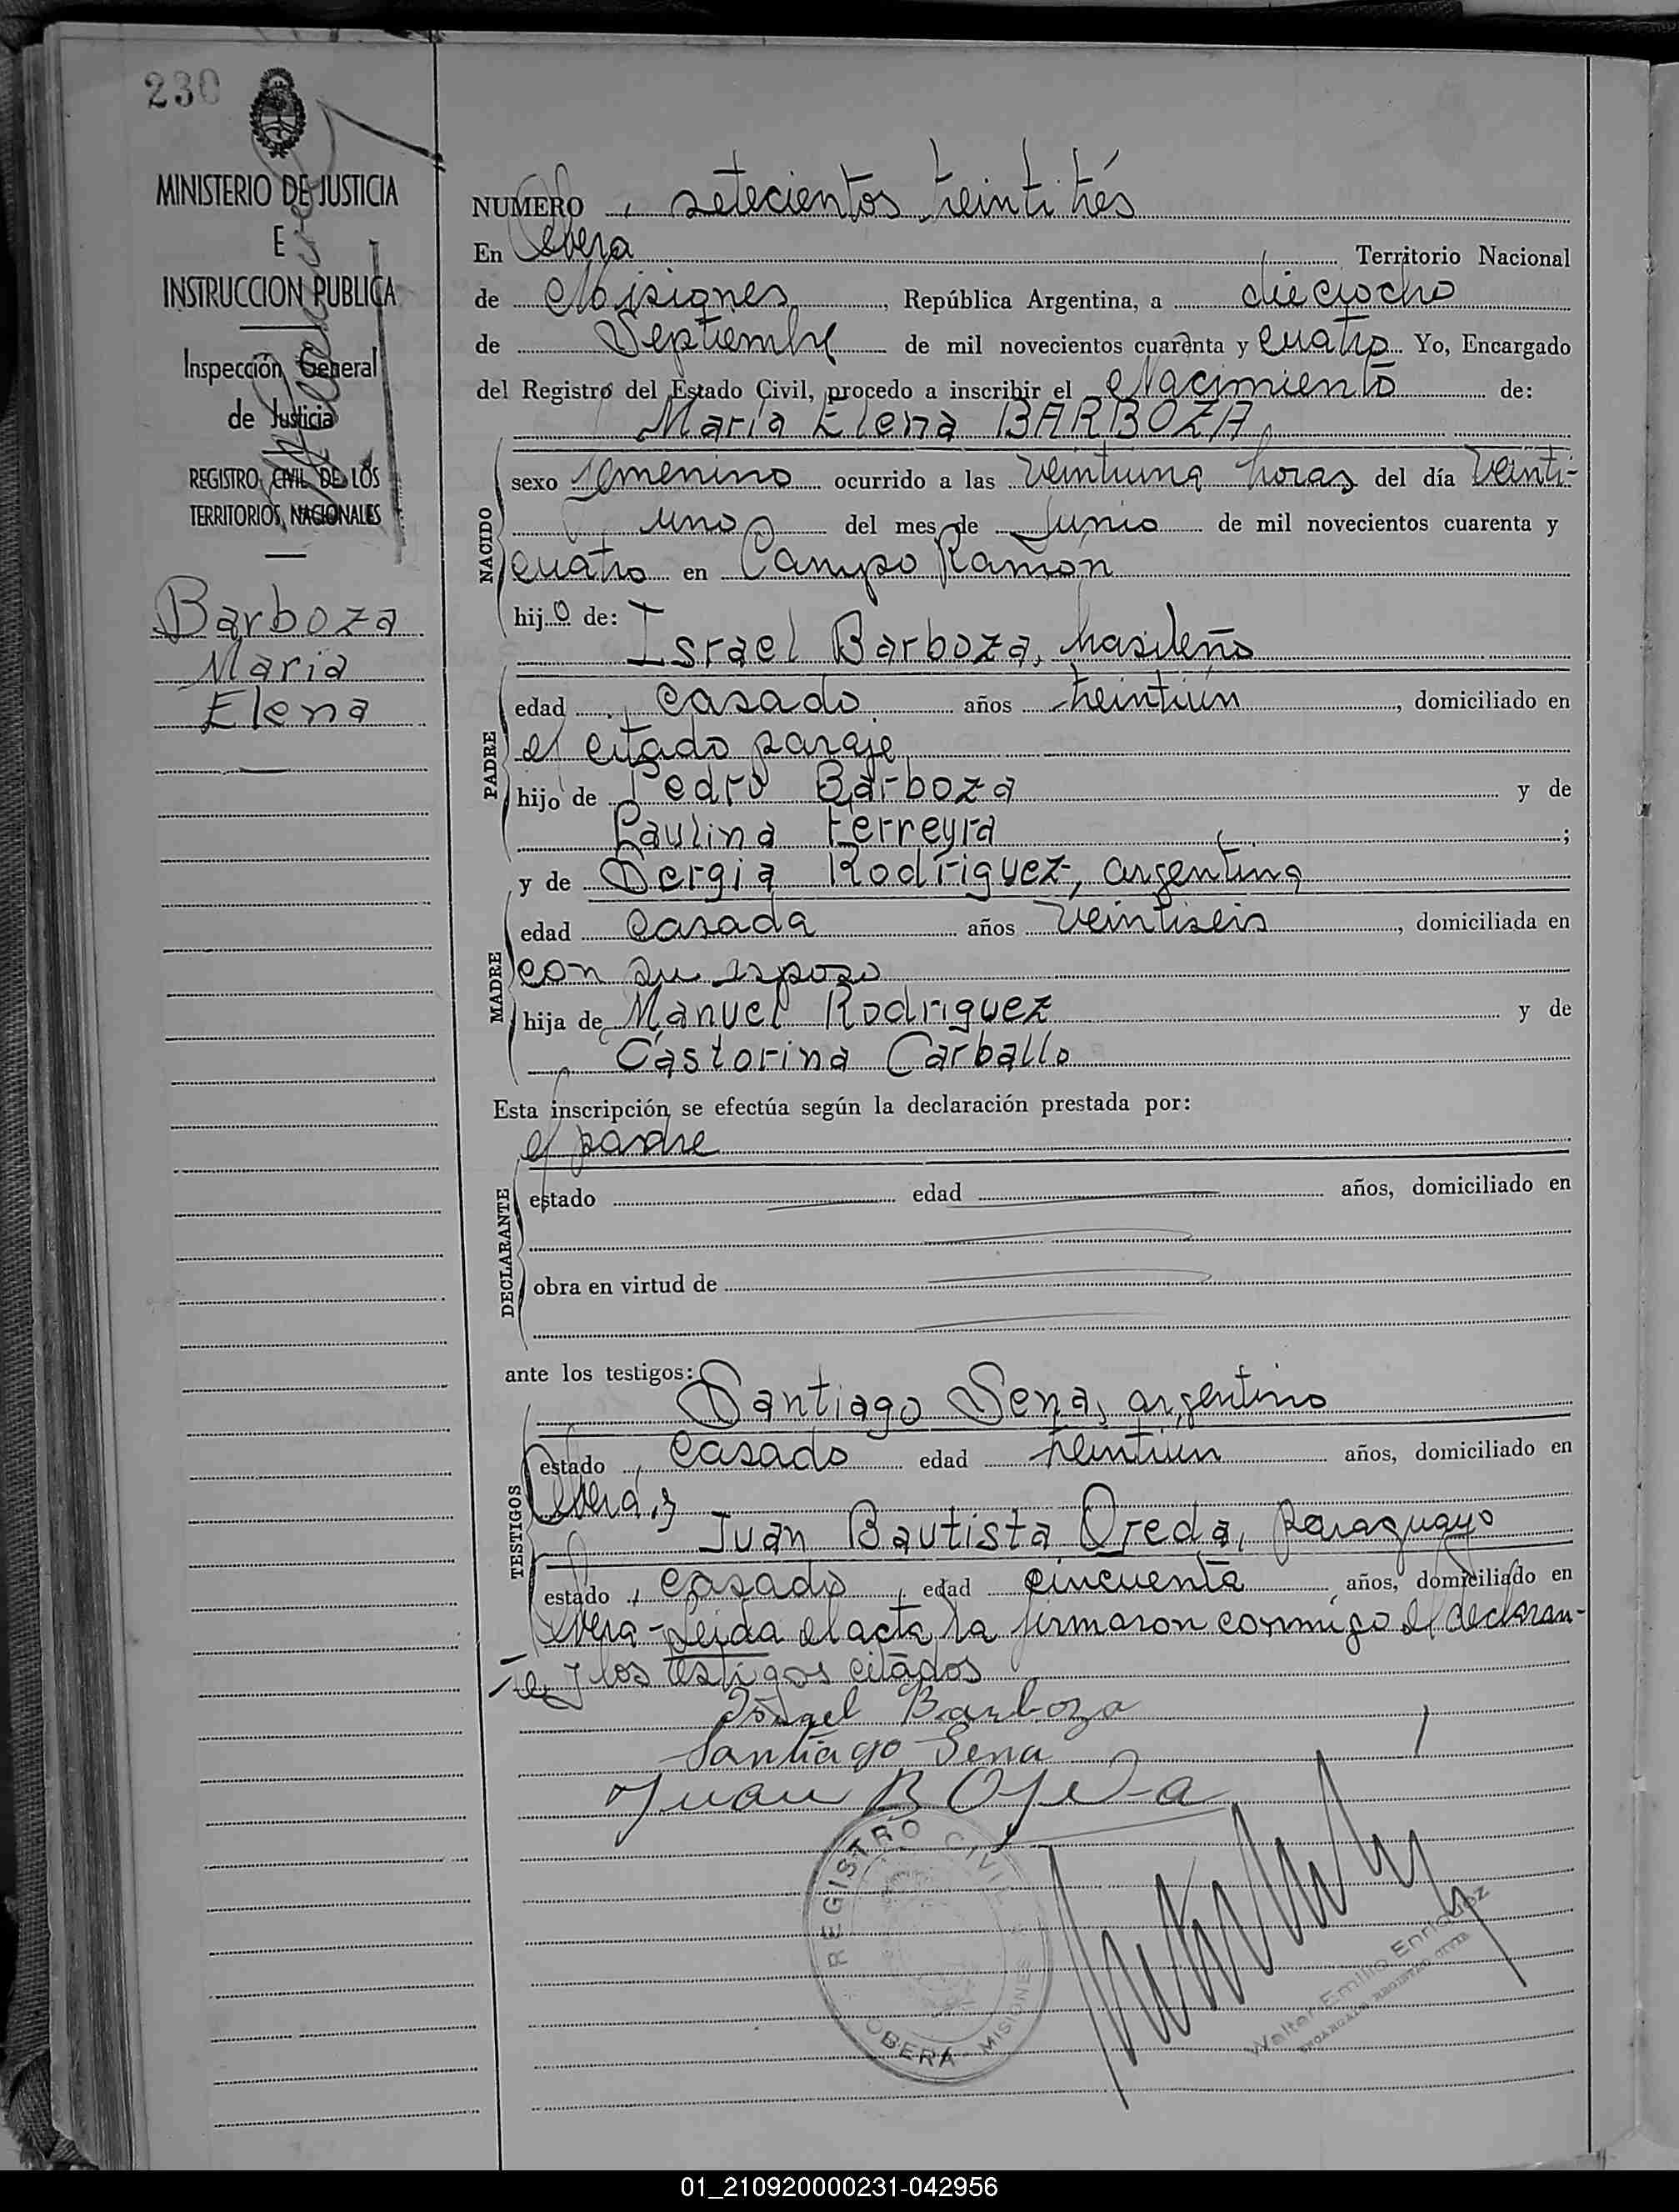 230
MINISTERIO DE JUSTICIA
E
INSTRUCCION PUBLICA
Inspección General
de Justicia
REGISTRO CIVIL DE LOS
TERRITORIOS NACIONALES
Barboza
María
Elena
NUMERO setecientos treintitrés
En Oberá Territorio Nacional
de Misiones, República Argentina, a dieciocho
de Septiembre de mil novecientos cuarenta y cuatro Yo, Encargado
del Registro del Estado Civil, procedo a inscribir el Nacimiento de:
María Elena BARBOZA
NACIDO
sexo femenino ocurrido a las veintiuna horas del día veinti-
uno del mes de Junio de mil novecientos cuarenta y
cuatro en Campo Ramón
hija de:
Israel Barboza, brasileño
PADRE
edad casado años treintiún, domiciliado en
el citado paraje
hijo de Pedro Barboza y de
Paulina Ferreyra;
y de Sergia Rodríguez, argentina
MADRE
edad casada años veintiseis, domiciliada en
con su esposo
hija de Manuel Rodriguez y de
Castorina Carballo
Esta inscripción se efectúa según la declaración prestada por:
el padre
DECLARANTE
estado edad años, domiciliado en
obra en virtud de
ante los testigos:
Santiago Sena, argentino
TESTIGOS
estado casado edad treintiun años, domiciliado en
Oberá, y
Juan Bautista Ojeda, paraguayo
estado, casado, edad cincuenta años, domiciliado en
Oberá - Leída el acta la firmaron conmigo el declaran-
te y los testigos citados
Israel Barboza
Santiago Sena
Juan B Ojeda
REGISTRO CIVIL
OBERA - MISIONES
Walter Emilio Enriquez
ENCARGADO REGISTRO CIVIL
01_210920000231-042956